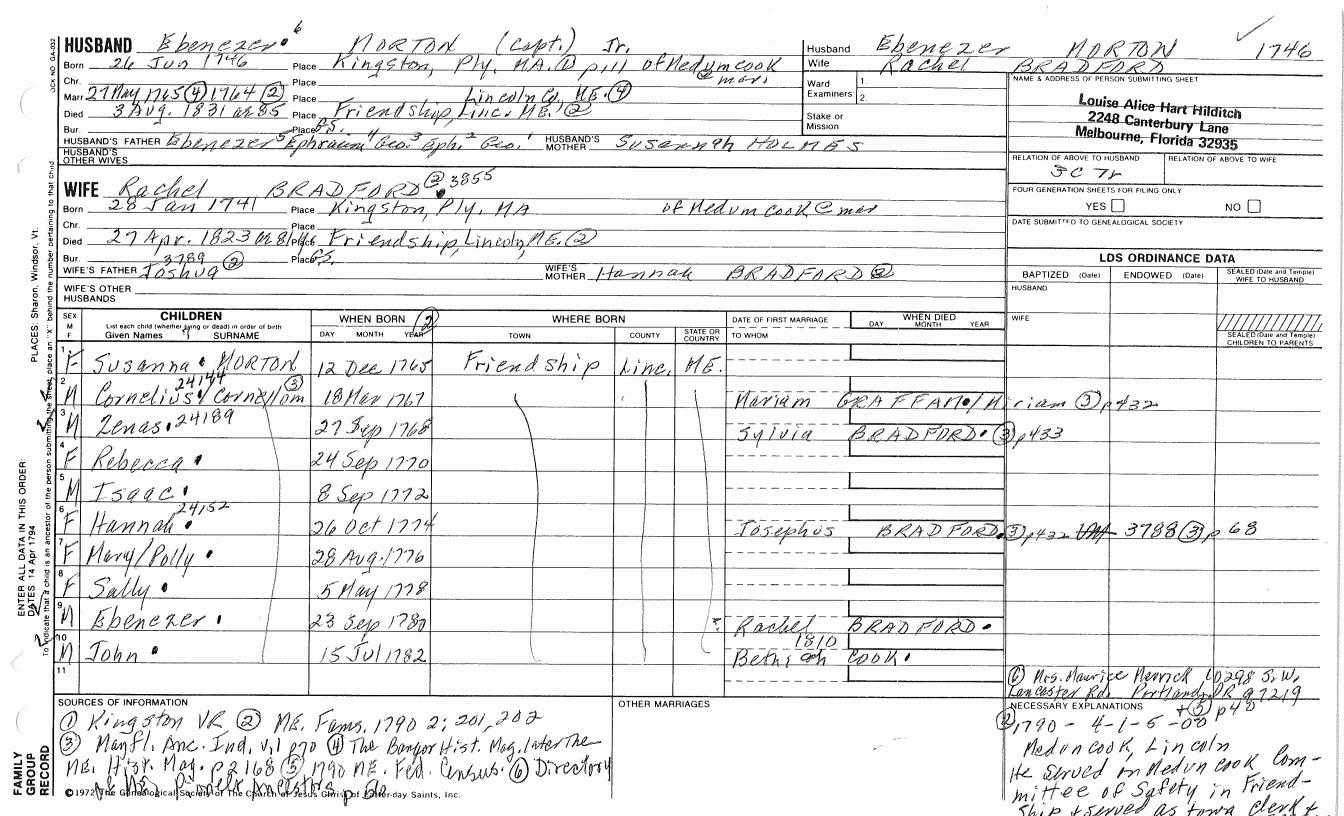 HUSBAND Ebenezer 6 MORTON (Capt.) Jr.
Born 26 Jun 1746 Place Kingston, Ply. MA. ① pill of Medumcook @ mar.
Chr. Place
Marr 27 May 1765 ④ 1764 ② Place Lincoln Co. ME. ④
Died 3 Aug. 1831 æ 85 Place Friendship, Linc. ME. ②
Bur. Place P.S.
HUSBAND'S FATHER Ebenezer 5 Ephraim 4 Geo. 3 Eph. 2 Geo. 1 HUSBAND'S MOTHER Susannah HOLMES
HUSBAND'S OTHER WIVES
WIFE Rachel BRADFORD ② 3855
Born 28 Jan 1741 Place Kingston, Ply. MA of Medumcook @ mar
Chr. Place
Died 27 Apr. 1823 Place Friendship, Lincoln, ME. ②
Bur. Place P.S.
WIFE'S FATHER 3789 Joshua ② WIFE'S MOTHER Hannah BRADFORD ②
WIFE'S OTHER HUSBANDS
Husband Ebenezer MORTON 1746
Wife Rachel BRADFORD
Ward Examiners 1 2
Stake or Mission
NAME & ADDRESS OF PERSON SUBMITTING SHEET
Louise Alice Hart Hilditch
2248 Canterbury Lane
Melbourne, Florida 32935
RELATION OF ABOVE TO HUSBAND RELATION OF ABOVE TO WIFE
3C 7r
FOUR GENERATION SHEETS FOR FILING ONLY
YES NO
DATE SUBMITTED TO GENEALOGICAL SOCIETY
LDS ORDINANCE DATA
BAPTIZED (Date) ENDOWED (Date) SEALED (Date and Temple) WIFE TO HUSBAND
HUSBAND
WIFE
SEALED (Date and Temple) CHILDREN TO PARENTS
SEX M F CHILDREN WHEN BORN ② WHERE BORN DATE OF FIRST MARRIAGE WHEN DIED
List each child (whether living or dead) in order of birth
Given Names SURNAME DAY MONTH YEAR TOWN COUNTY STATE OR COUNTRY TO WHOM DAY MONTH YEAR
1 F Susanna MORTON 12 Dec 1765 Friendship Linc. ME.
2 M Cornelius 24144 ③ 18 Mar 1767 Mariam GRAFFAM / Miriam ③ p432
3 M Zenas 24189 27 Sep 1768 Sylvia BRADFORD ③ p433
4 F Rebecca 24 Sep 1770
5 M Isaac 8 Sep 1772
6 F Hannah 24152 26 Oct 1774 Josephus BRADFORD ③ p432 3788 ③ p 68
7 F Mary/Polly 28 Aug. 1776
8 F Sally 5 May 1778
9 M Ebenezer 23 Sep 1780 Rachel BRADFORD
10 M John 15 Jul 1782 1810 COOK
11
SOURCES OF INFORMATION
① Kingston VR ② ME. Fams, 1790 2; 201, 202
③ Mayfl. Anc. Ind. v.1 p70 ④ The Bangor Hist. Mag. later The
ME. Hist. Mag. p 2168 ⑤ 1790 ME. Fed. Census. ⑥ Directory
of the Pioneer Ancestors
©1972 The Genealogical Society of The Church of Jesus Christ of Latter-day Saints, Inc.
OTHER MARRIAGES
⑥ Mrs. Maurice Merrick 10298 S.W.
Lancaster Rd. Portland, OR 97219
NECESSARY EXPLANATIONS + ⑤ p 40
② 1790 - 4-1-5-00
Meduncook, Lincoln
He served on Meduncook Com-
mittee of Safety in Friend-
ship & served as town clerk &
PLACES: Sharon, Windsor, Vt.
ENTER ALL DATA IN THIS ORDER:
DATES 14 Apr 1794
To indicate that a child is an ancestor of the person submitting the sheet, place an "X" behind the number pertaining to that child
FAMILY GROUP RECORD